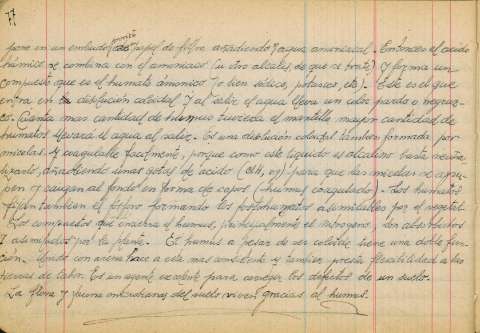 77
pone en un embudo con papel de filtro añadiendo agua amoniacal. Entonces el acido
húmico se combina con el amoniaco (u otro alcali, de que se trate) y forma un
compuesto que es el humato amónico (o bien sódico, potásico, etc). Este es el que
entra en la disolución coloidal y al salir el agua lleva un color pardo o negruz-
co. Cuanta mas cantidad de humus tuviera el mantillo, mayor cantidad de
humatos llevará el agua al salir. Es una disolución coloidal tambien formada por
micelas. Y coagulable facilmente, porque como este liquido es alcalino basta neutra-
lizarlo, añadiendo unas gotas de ácido (ClH, ) para que las micelas se agru-
pen y caigan al fondo en forma de copos (humus coagulado). Los humatos
fijan tambien el fósforo formando los fosfohumatos asimilables por el vegetal.
Los compuestos que encierra el humus, principalmente el nitrogeno son absorbidos
y asimilados por la planta. El humus a pesar de ser coloide tiene una doble fun-
ción. Unido con arena hace a ella mas consistente y tambien presta flexibilidad a las
tierras de labor. Es un agente excelente para corregir los defectos de un suelo.
La flora y fauna microbianas del suelo viven gracias al humus.